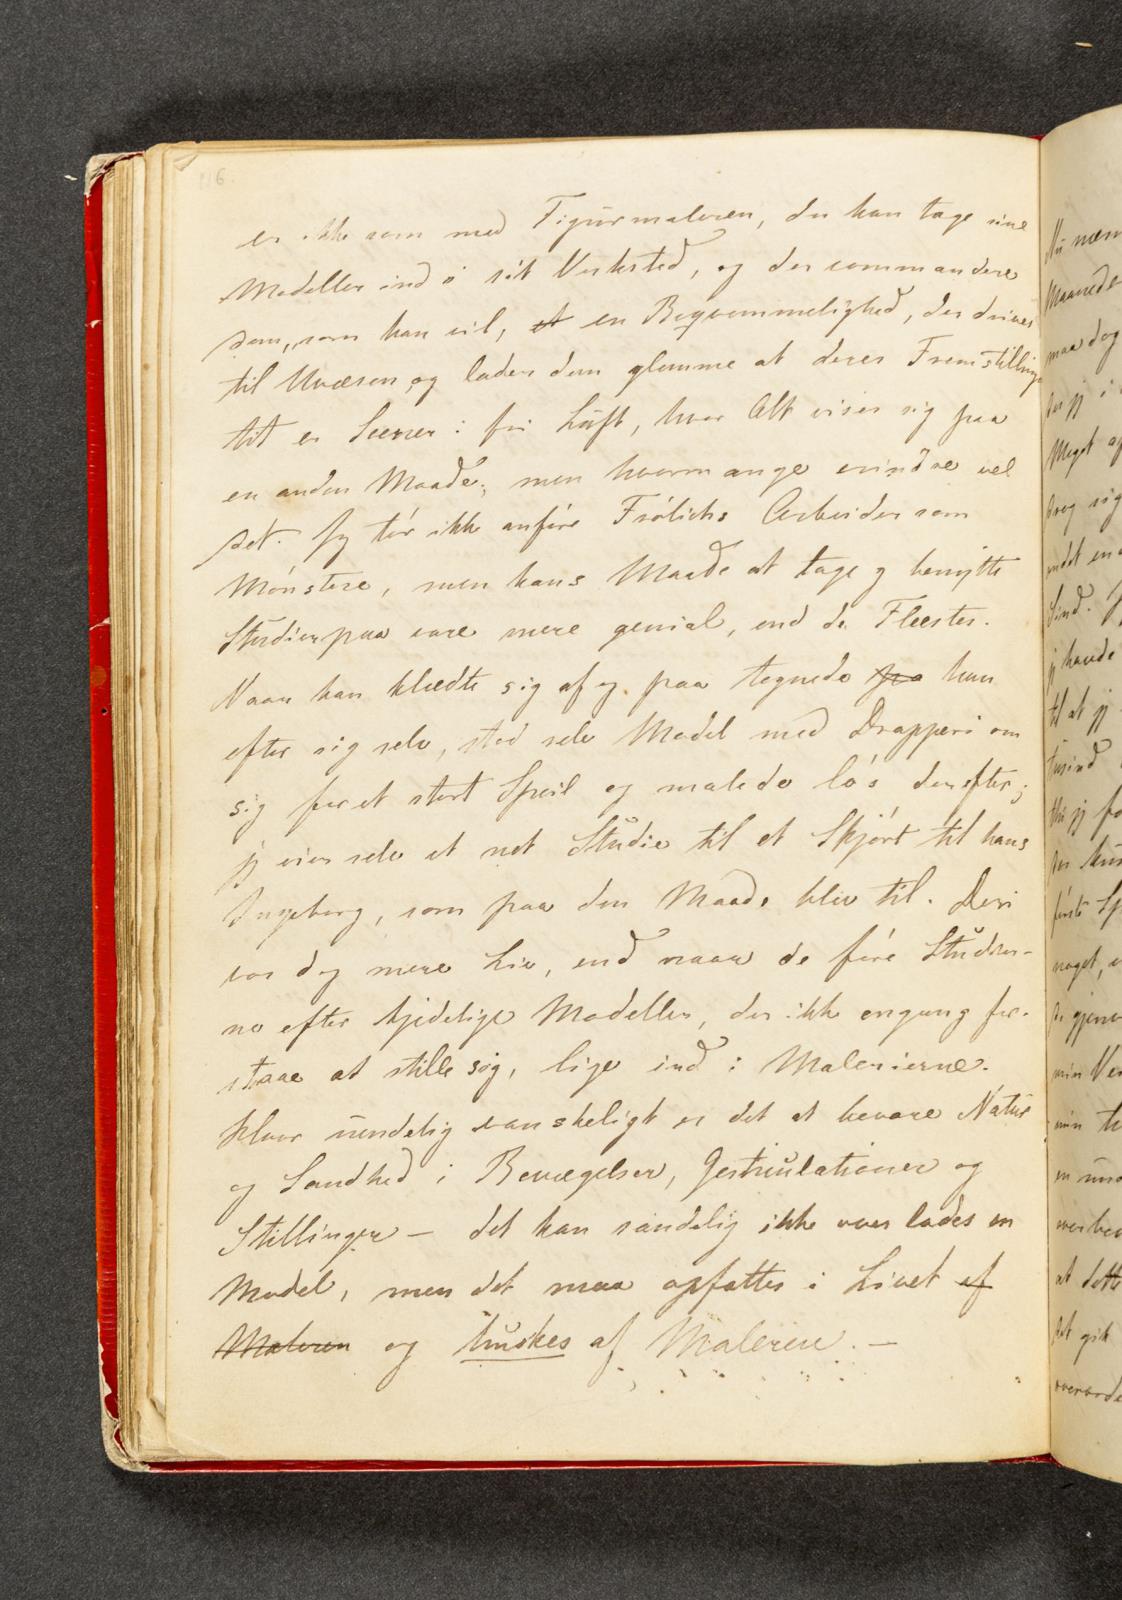 116.
er ikke som med Figurmaleren, der kan tage sine
Modeller ind i sit Verksted, og der commandere
dem, som han vil, et en Beqvemmelighed, der drives
til Uvæsen, og lader dem glemme at deres Fremstilling
tit er Scener i fri Luft, hvor Alt viser sig paa
en anden Maade; men hvormange erindre vel
det. Jeg tør ikke anføre Frölichs Arbeider som
Mønstere, men hans Maade at tage og benytte
Studier paa vare mere genial, end de Fleestes.
Naar han klædte sig af og paa tegnede paa han
efter sig selv, stod selv Model med Drapperi om
sig for et stort Speil og malede løs derefter;
jeg eier selv et net Studie til et Skjørt til hans
Ingeborg, som paa den Maade blev til. Deri
var dog mere Liv, end naar de føre Studier-
ne efter kjedelige Modeller, der ikke engang for-
staae at stille sig, lige ind i Malerierne.
Hvor uendelig vanskeligt er det at bevare Natur
og Sandhed i Bevægelser, Gestikulationer og
Stillinger – det kan sandelig ikke overlades en
Model, men det maa opfattes i Livet af
Maleren og huskes af Maleren. –